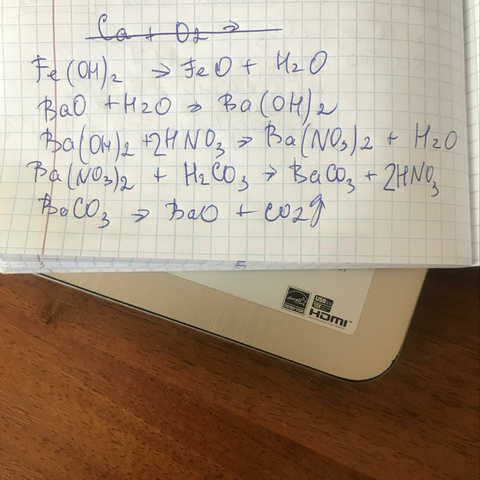 Ca + O2 →
Fe(OH)2 → FeO + H2O
BaO + H2O → Ba(OH)2
Ba(OH)2 + 2HNO3 → Ba(NO3)2 + H2O
Ba(NO3)2 + H2CO3 → BaCO3 + 2HNO3
BaCO3 → BaO + CO2↑
HDMI